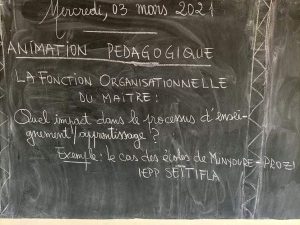 Mercredi, 03 mars 2021
ANIMATION PEDAGOGIQUE
LA FONCTION ORGANISATIONNELLE
DU MAITRE :
Quel impact dans le processus d'ensei-
gnement/apprentissage ?
Exemple : le cas des écoles de MINYOURE-PROZI
IEPP SEITIFLA